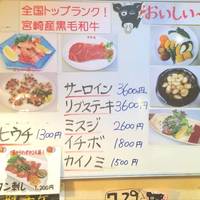 全国トップランク！
宮崎産黒毛和牛
おいしい
サーロイン 3600円
リブステーキ 3600円
ミスジ 2600円
イチボ 1800円
カイノミ 1500円
ヒウチ 1300円
タン刺し 1,200円
7.29